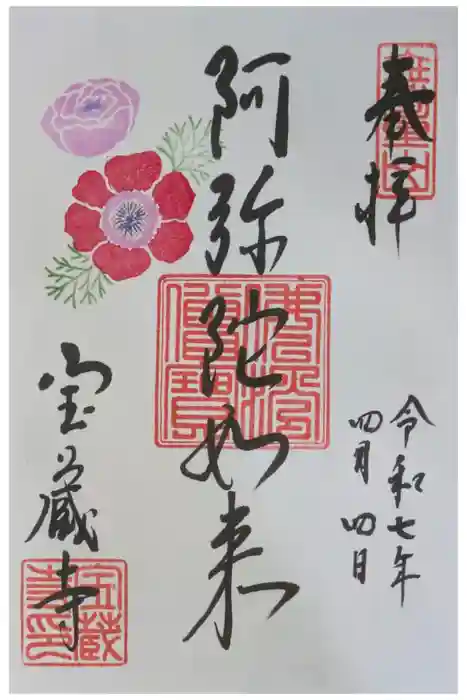 奉拝
令和七年
四月四日
阿弥陀如来
佛法僧寳
宝蔵寺